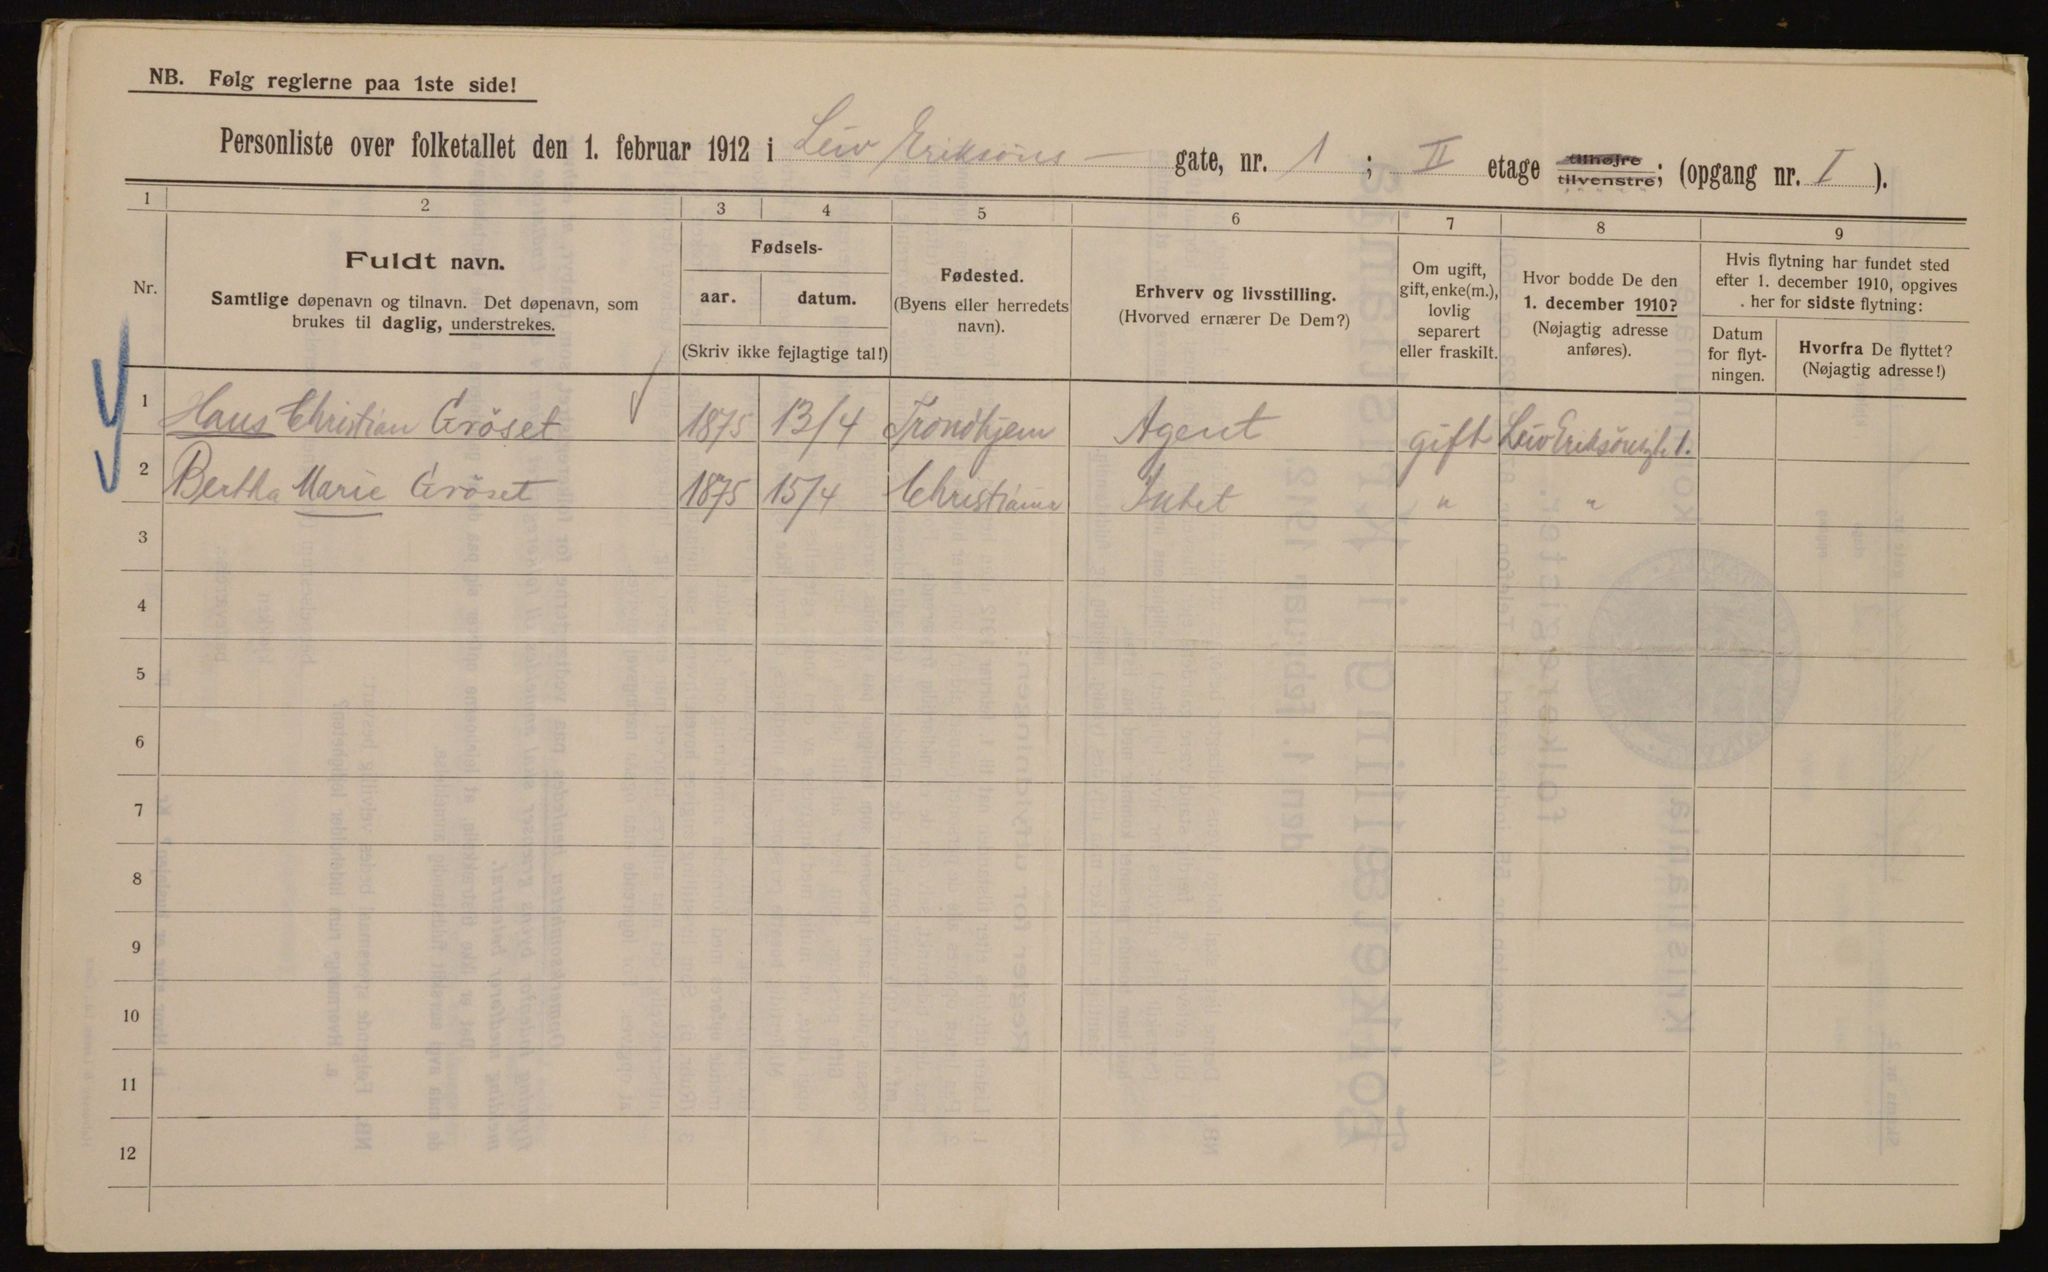 NB. Følg reglerne paa 1ste side!
Personliste over folketallet den 1. februar 1912 i Leiv Eriksøns — gate, nr. 1 ; II etage tilhøjre tilvenstre; (opgang nr. I ).
1 2 3 4 5 6 7 8 9
Nr.
Fuldt navn.
Samtlige døpenavn og tilnavn. Det døpenavn, som
brukes til daglig, understrekes.
Fødsels-
aar. datum.
(Skriv ikke fejlagtige tal!)
Fødested.
(Byens eller herredets
navn).
Erhverv og livsstilling.
(Hvorved ernærer De Dem?)
Om ugift,
gift, enke(m.),
lovlig
separert
eller fraskilt.
Hvor bodde De den
1. december 1910?
(Nøjagtig adresse
anføres).
Hvis flytning har fundet sted
efter 1. december 1910, opgives
her for sidste flytning:
Datum
for flyt-
ningen.
Hvorfra De flyttet?
(Nøjagtig adresse!)
1 Hans Christian Gröset 1875 13/4 Trondhjem Agent gift Leiv Eriksønsgt 1.
2 Bertha Marie Gröset 1875 15/4 Christiania Intet " "
3
4
5
6
7
8
9
10
11
12